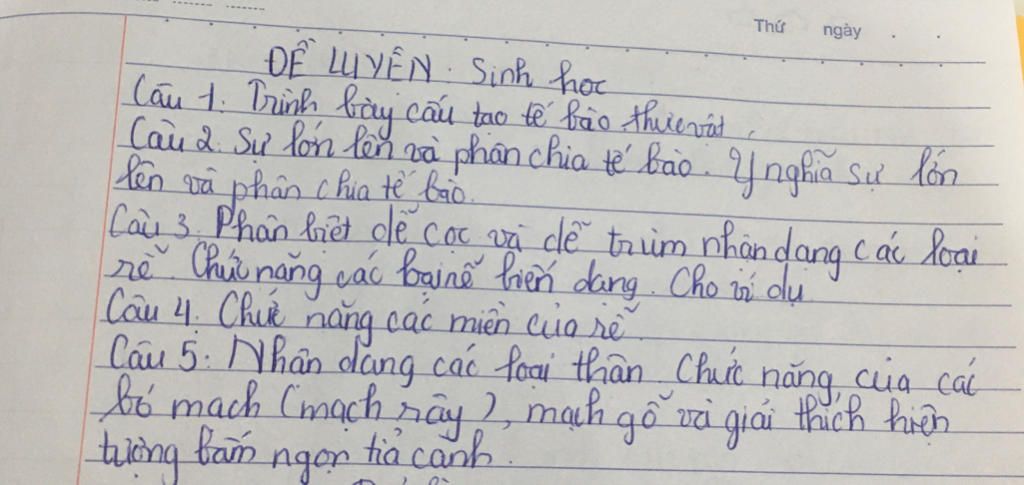 Thứ ngày
ĐỀ LUYỆN. Sinh học
Câu 1. Trình bày cấu tạo tế bào thực vật.
Câu 2. Sự lớn lên và phân chia tế bào. Ý nghĩa sự lớn
lên và phân chia tế bào.
Câu 3. Phân biệt dễ cọc và dễ trùm nhận dạng các loại
rễ. Chức năng các loại rễ biến dạng. Cho ví dụ
Câu 4. Chức năng các miền của rễ.
Câu 5: Nhận dạng các loại thân. Chức năng của các
bó mạch (mạch rây), mạch gỗ và giải thích hiện
tượng bấm ngọn tỉa cành.